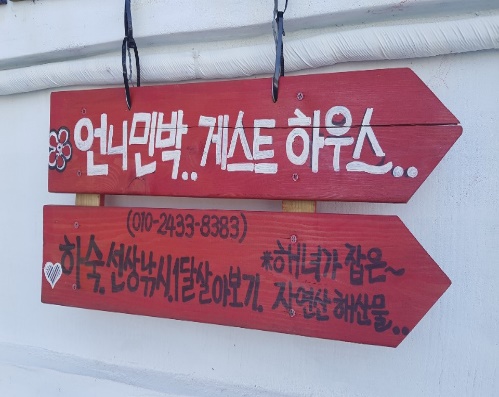 언니민박.. 게스트 하우스..
(010-2433-8383)
하숙.선상낚시.1달살아보기.
*해녀가 잡은~
자연산 해산물..